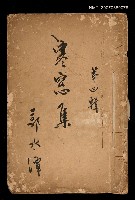 第四輯
寒窓集
郭水潭